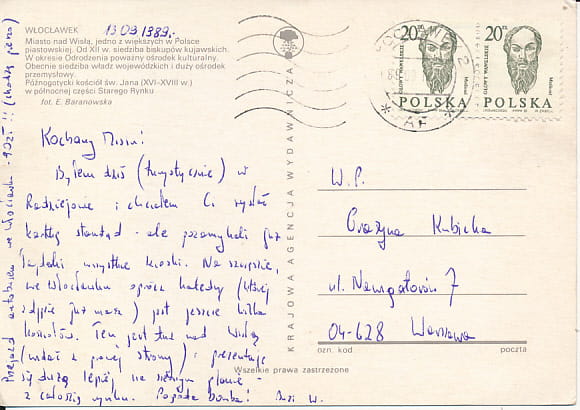 WŁOCŁAWEK
Miasto nad Wisłą, jedno z większych w Polsce
piastowskiej. Od XII w. siedziba biskupów kujawskich.
W okresie Odrodzenia poważny ośrodek kulturalny.
Obecnie siedziba władz wojewódzkich i duży ośrodek
przemysłowy.
Późnogotycki kościół św. Jana (XVI-XVIII w.)
w północnej części Starego Rynku
fot. E. Baranowska
13.09.1989.
Kochany Misiu!
Byłem dziś (turystycznie) w
Radziejowie i chciałem Ci wysłać
kartkę stamtąd - ale pozamykali już
wszystkie kioski. Na szczęście,
we Włocławku oprócz katedry (której
zdjęcie już masz) jest jeszcze kilka
kościołów. Ten jest tuż nad Wisłą
(widać z prawej strony) i prezentuje
się dużo lepiej na żywym planie -
z całością rynku. Pogoda bomba!
Przejazd autobusem we Włocławku - 90zł !! (chodzę pieszo)
KRAJOWA AGENCJA WYDAWNICZA
WŁOCŁAWEK 2
AF
20 zł
GŁOWY WAWELSKIE
POLSKA
20 zł
GŁOWY WAWELSKIE
POLSKA
W.P.
Grażyna Kubicka
ul. Nawigatorów 7
04-628 Warszawa
ozn. kod poczta
Wszelkie prawa zastrzeżone